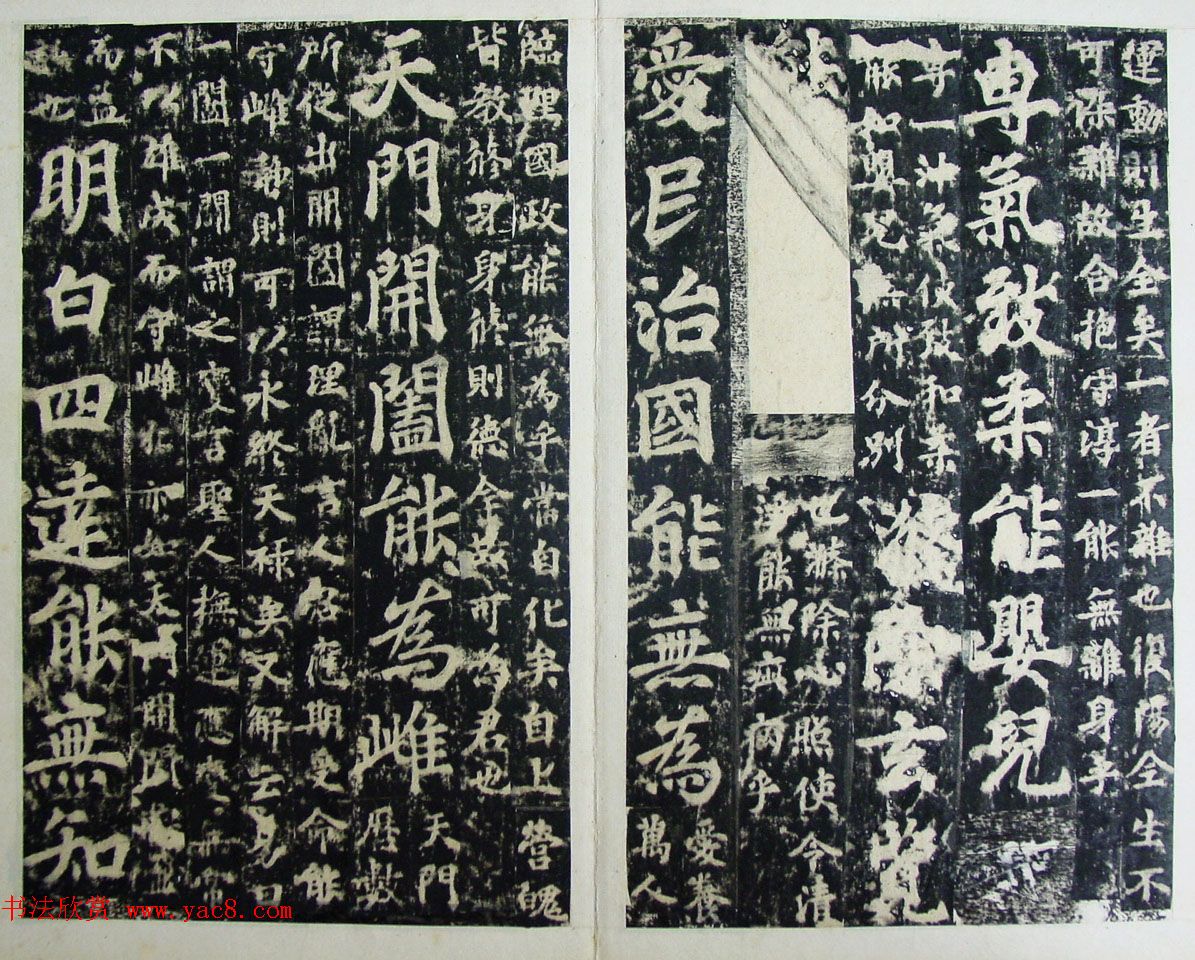 運動則生全矣一者不雜也復陽全生不
可染雜故令抱守淳一能無離身乎
專氣致柔能嬰兒
專一沖氣使致和柔
能如嬰兒無所分別
滌除玄覽
世滌除心照使令清
淨能無疵病乎
愛民治國能無為
愛養
萬人
臨理國政能無為乎當自化矣自上營魄
皆教修身身修則德全故可為君也
天門開闔能為雌
天門
曆數
所從出開闔謂理亂言人君應期受命能
守雌靜則可以永終天祿矣又解云易曰
一闔一闢謂之變言聖人撫運應變無常
不以雄成而守雌牝亦如天門開闔虛盈
而益
謙也
明白四達能無知
书法欣赏 www.yac8.com